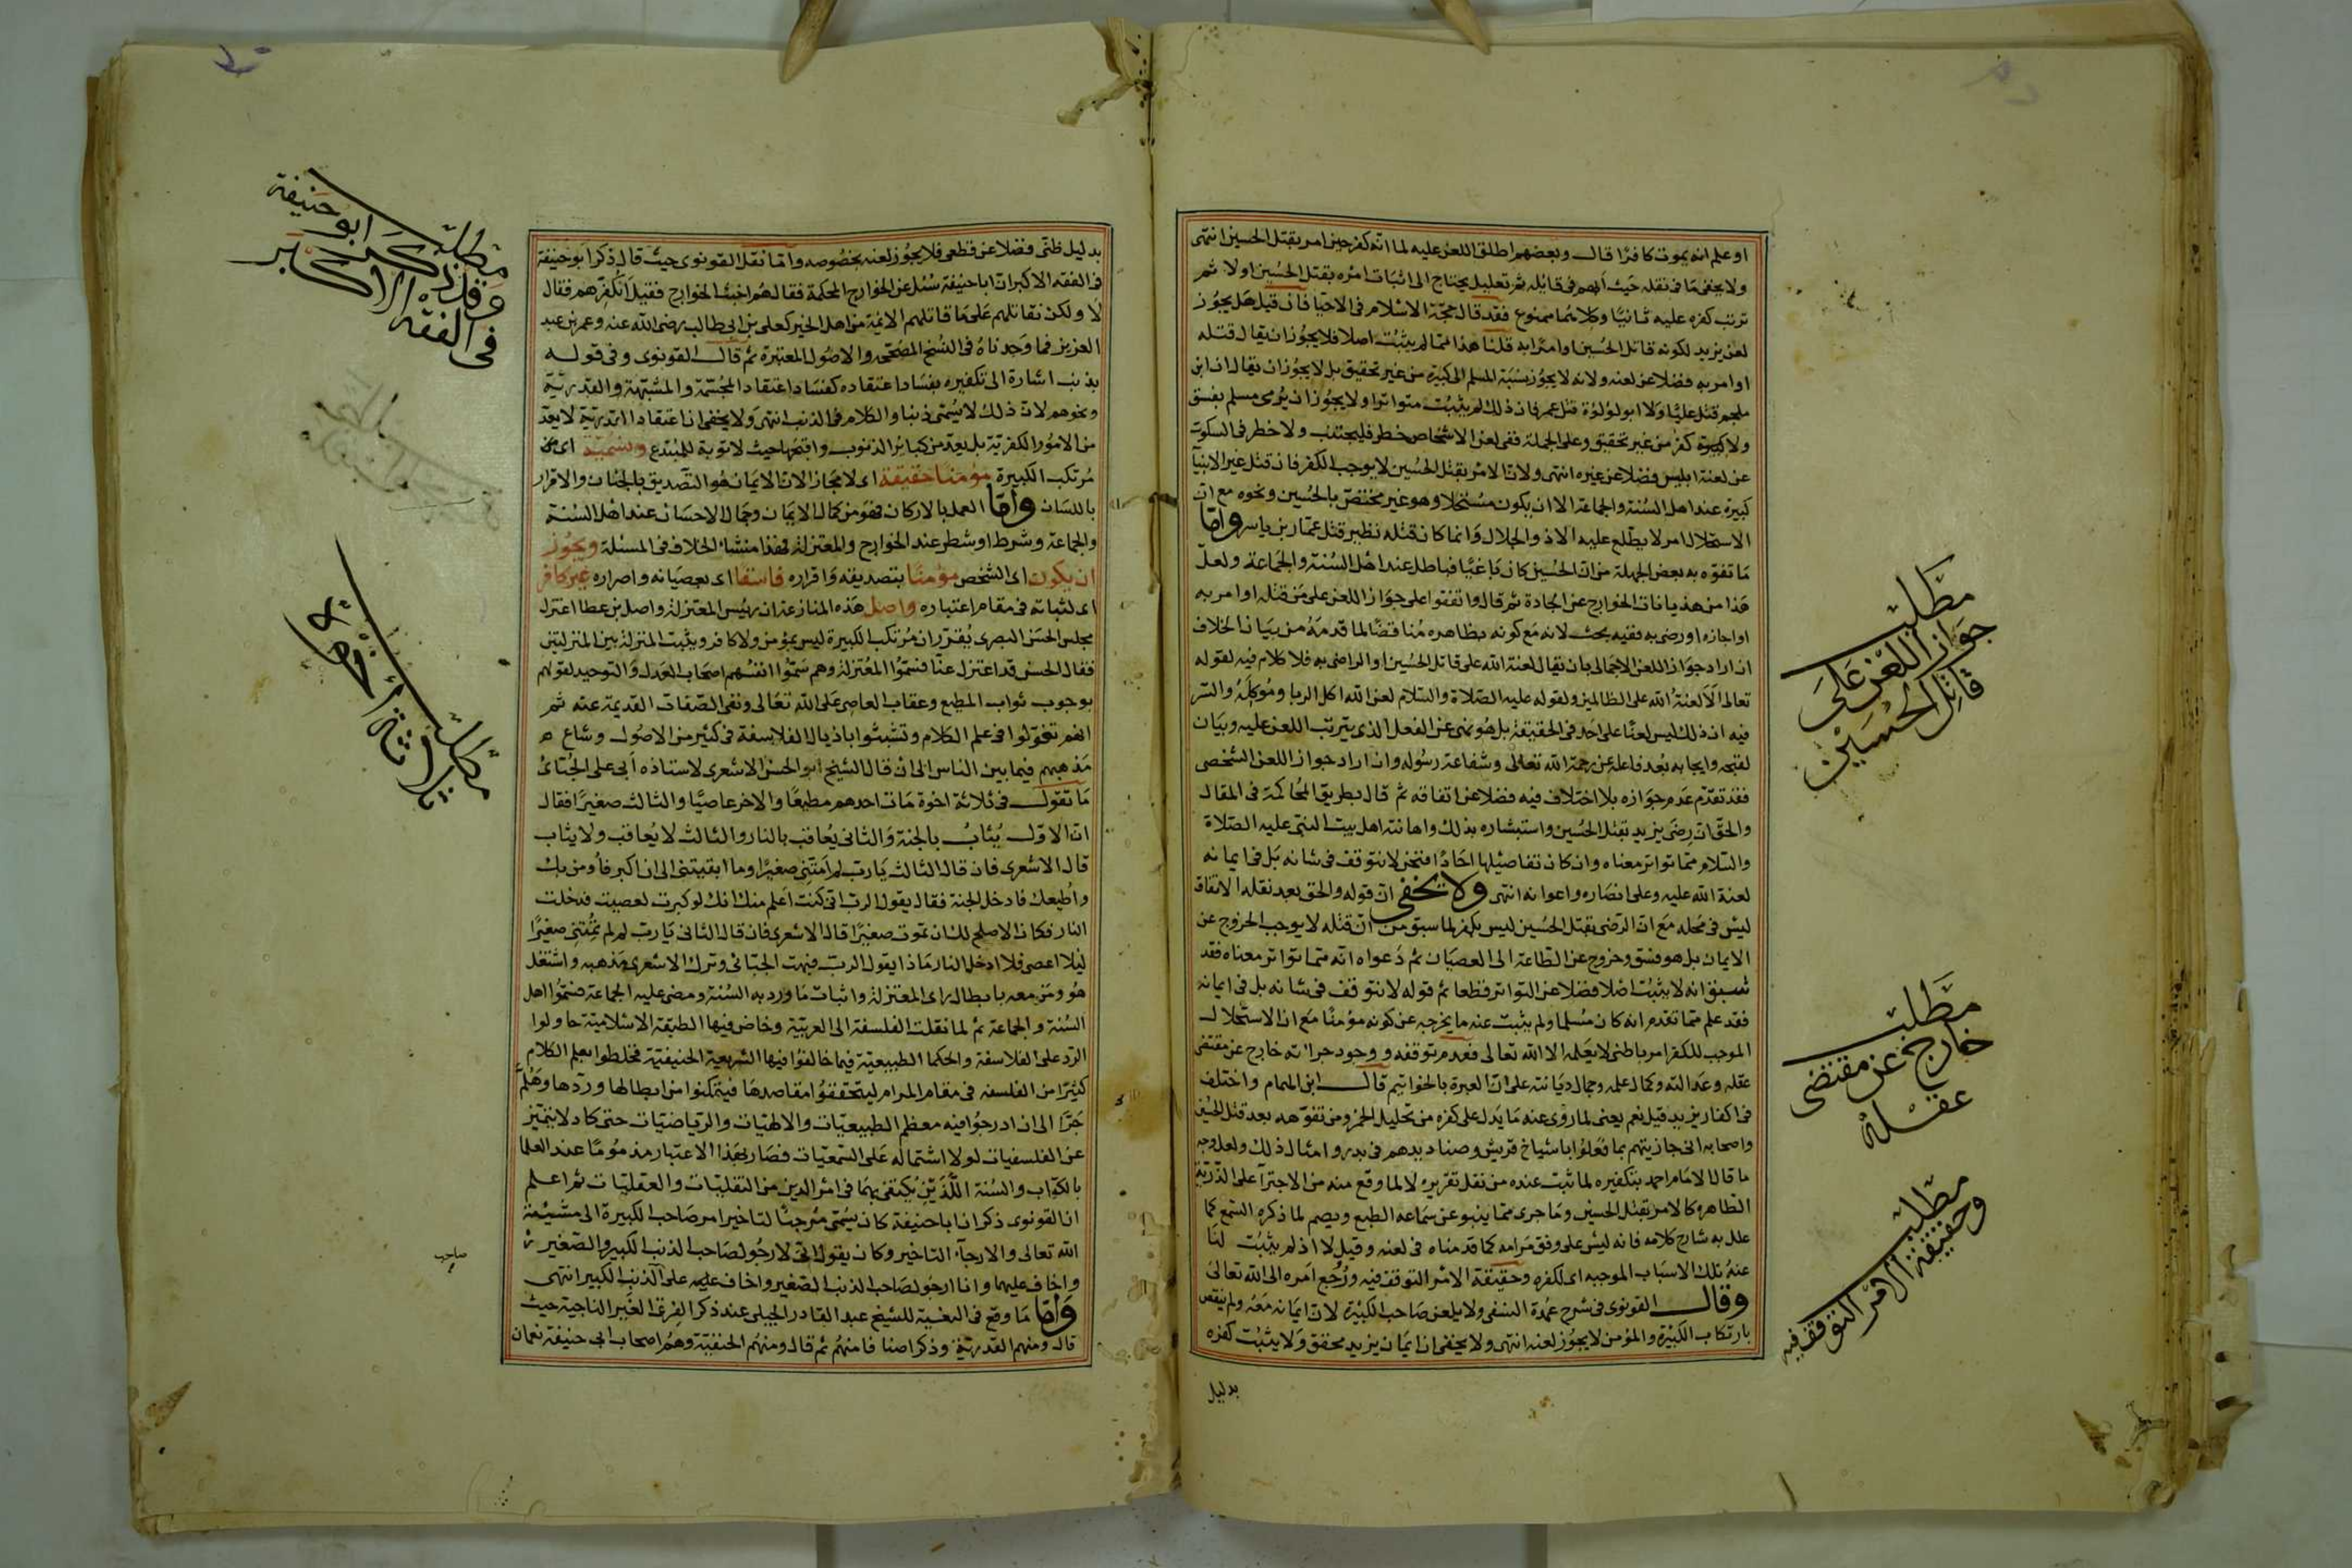 او علم انه يموت كافرا قال وبعضهم اطلق اللعن عليه لما انه كفر حين امر بقتل الحسين انتهى
ولا يخفى ما فى نقله حيث أبهم فى قائله ثم تعليله يحتاج الى اثبات امره بقتل الحسين اولا ثم
ترتب كفره عليه ثانيا وكلاهما ممنوع فقد قال حجة الاسلام فى الاحيا فان قيل هل يجوز
لعن يزيد لكونه قاتل الحسين او امرا به قلنا هذا مما لم يثبت اصلا فلا يجوز ان يقال قتله
او امر به فضلا عن لعنه ولانه لا يجوز نسبة المسلم الى كبيرة من غير تحقيق بل لا يجوز ان يقال ان ابن
ملجم قتل عليا ولا ابو لؤلؤة قتل عمر فان ذلك لم يثبت متواترا ولا يجوز ان يرمى مسلم بفسق
ولا كبيرة كفر من غير تحقيق وعلى الجملة ففى لعن الاشخاص خطر فليجتنب ولا خطر فى السكوت
عن لعنة ابليس فضلا عن غيره انتهى ولان الامر بقتل الحسين لا يوجب الكفر فان قتل غير الانبيا
كبيرة عند اهل السنة والجماعة الا ان يكون مستحلا وهو غير مختص بالحسين ونحوه مع ان
الاستحلال امر لا يطلع عليه الا ذو الجلال وانما كان قتله نظير قتل عمار بن ياسر واما
ما تفوه به بعض الجهلة من ان الحسين كان باغيا فباطل عند اهل السنة والجماعة ولعل
هذا من هذيانات الخوارج عن الجادة ثم قال واتفقوا على جواز اللعن على من قتله او امر به
او اجازه او رضى به ففيه بحث لانه مع كونه بظاهره مناقضا لما قدمه من بيان الخلاف
ان اراد جواز اللعن الاجمالى بان يقال لعنة الله على قاتل الحسين او الراضى به فلا كلام فيه لقوله
تعالى الا لعنة الله على الظالمين ولقوله عليه الصلاة والسلام لعن الله اكل الربا وموكله والسر
فيه ان ذلك ليس لعنا على احد فى الحقيقة بل هو نهى عن الفعل الذى يترتب اللعن عليه وبيان
لقبحه وايجابه بعد فاعله عن رحمة الله تعالى وشفاعة رسوله وان اراد جواز اللعن الشخصى
فقد تقدم عدم جوازه بلا اختلاف فيه فضلا عن اتفاقه ثم قال بطريق المحاكمة فى المقال
والحق ان رضى يزيد بقتل الحسين واستبشاره بذلك واهانته اهل بيت النبى عليه الصلاة
والسلام مما تواتر معناه وان كان تفاصيلها احادا فنحن لا نتوقف فى شانه بل فى ايمانه
لعنة الله عليه وعلى انصاره واعوانه انتهى ولا يخفى ان قوله والحق بعد نقله الاتفاق
ليس فى محله مع ان الرضى بقتل الحسين ليس بكفر لما سبق من ان قتله لا يوجب الخروج عن
الايمان بل هو فسق وخروج عن الطاعة الى العصيان ثم دعواه انه مما تواتر معناه فقد
سبق انه لا يثبت اصلا فضلا عن التواتر قطعا ثم قوله لا نتوقف فى شانه بل فى ايمانه
فقد علم مما تقدم انه كان مسلما ولم يثبت عنه ما يخرجه عن كونه مؤمنا مع ان الاستحلال
الموجب للكفر امر باطنى لا يعلمه الا الله تعالى فعدم توقفه و وجود جراته خارج عن مقتضى
عقله وعدالته وكمال علمه وجمال ديانته على ان العبرة بالخواتيم قال ابن الهمام واختلف
فى اكفار يزيد قيل نعم يعنى لما روى عنه ما يدل على كفره من تحليل الخمر ومن تفوهه بعد قتل الحسين
واصحابه انى جازيتهم بما فعلوا باشياخ قريش وصناديدهم فى بدر وامثال ذلك ولعله وجه
ما قال الامام احمد بتكفيره لما ثبت عنده من نقل تقريره لا لما وقع منه من الاجترآ على الذرية
الطاهرة كالامر بقتل الحسين وما جرى مما ينبو عن سماعه الطبع ويصم لما ذكره السمع كما
علل به شارح كلامه فانه ليس على وفق مرامه كما قدمناه فى لعنه وقيل لا اذ لم يثبت لنا
عنه تلك الاسباب الموجبه اى لكفره وحقيقة الامر التوقف فيه ورجع امره الى الله تعالى
وقال القونوى فى شرح عمدة النسفى ولا يلعن صاحب الكبيرة لان ايمانه معه ولم ينقص
بارتكاب الكبيرة والمؤمن لا يجوز لعنه انتهى ولا يخفى ان ايمان يزيد محقق ولا يثبت كفره
بدليل
مطلب
جواز اللعن على
قاتل الحسين
مطلب
خارج عن مقتضى
عقله
مطلب
وحقيقة الامر التوقف فيه
بدليل ظنى فضلا عن قطعى فلا يجوز لعنه بخصوصه واما نقل القونوى حيث قال ذكر ابو حنيفة
فى الفقه الاكبر ان ابا حنيفة سئل عن الخوارج المحكمة فقال هم اخبث الخوارج فقيل اتكفرهم فقال
لا ولكن نقاتلهم على ما قاتلهم الائمة من اهل الخير كعلى بن ابى طالب رضى الله عنه وعمر بن عبد
العزيز فما وجدناه فى النسخ المصححة والاصول المعتبرة ثم قال القونوى وفى قوله
بذنب اشارة الى تكفيره بفساد اعتقاده كفساد اعتقاد المجسمة والمشبهة والقدرية
ونحوهم لان ذلك لا يسمى ذنبا والكلام فى الذنب انتهى ولا يخفى ان اعتقاد القدرية لا يعد
من الامور الكفرية بل يعد من كبائر الذنوب واقبحها حيث لا توبة للمبتدع ونسميه اى
مرتكب الكبيرة مؤمنا حقيقة اى لا مجازا لان الايمان هو التصديق بالجنان والاقرار
باللسان واما العمل بالاركان فهو من كمال الايمان وجمال الاحسان عند اهل السنة
والجماعة وشرط او شطر عند الخوارج والمعتزلة فهذا منشاء الخلاف فى المسئلة ويجوز
ان يكون اى الشخص مؤمنا بتصديقه واقراره فاسقا اى بعصيانه واصراره غير كافر
اى لثباته فى مقام اعتباره واصل هذه المنازعة ان رئيس المعتزلة واصل بن عطا اعتزل
مجلس الحسن البصرى يقرر ان مرتكب الكبيرة ليس بمؤمن ولا كافر ويثبت المنزلة بين المنزلتين
فقال الحسن قد اعتزل عنا فسموا المعتزلة وهم سموا انفسهم اصحاب العدل والتوحيد لقولهم
بوجوب ثواب المطيع وعقاب العاصى على الله تعالى ونفى الصفات القديمة عنه ثم
انهم توغلوا فى علم الكلام وتشبثوا باذيال الفلاسفة فى كثير من الاصول وشاع
مذهبهم فيما بين الناس الى ان قال الشيخ ابو الحسن الاشعرى لاستاذه أبى على الجبائى
ما تقول فى ثلاثة اخوة مات احدهم مطيعا والاخر عاصيا والثالث صغيرا فقال
ان الاول يثاب بالجنة والثانى يعاقب بالنار والثالث لا يعاقب ولا يثاب
قال الاشعرى فان قال الثالث يا رب لم امتنى صغيرا وما ابقيتنى الى ان اكبر فأومن بك
واطيعك فادخل الجنة فقال يقول الرب انى كنت اعلم منك انك لو كبرت لعصيت فدخلت
النار فكان الاصلح لك ان تموت صغيرا قال الاشعرى فان قال الثانى يا رب لم لم تمتنى صغيرا
ليلا اعصى فلا ادخل النار ماذا يقول الرب فبهت الجبائى وترك الاشعرى مذهبه واشتغل
هو ومن معه بابطال راى المعتزلة واثبات ما ورد به السنة ومضى عليه الجماعة فسموا اهل
السنة والجماعة ثم لما نقلت الفلسفة الى العربية وخاض فيها الطبقة الاسلامية حاولوا
الرد على الفلاسفة والحكما الطبيعية فيما خالفوا فيها الشريعة الحنيفية فخلطوا بعلم الكلام
كثيرا من الفلسفه فى مقام المرام ليتحققوا مقاصدها فيتمكنوا من ابطالها وردها وهلم
جرا الى ان ادرجوا فيه معظم الطبيعيات والالهيات والرياضيات حتى كاد لا يتميز
عن الفلسفيات لولا اشتماله على السمعيات فصار بهذا الاعتبار مذموما عند العلما
بالكتاب والسنة اللذين يكتفى بهما فى امر الدين من النقليات والعقليات ثم اعلم
ان القونوى ذكر ان ابا حنيفة كان يسمى مرجئا لتاخير امر صاحب الكبيرة الى مشيئة
الله تعالى والارجآء التاخير وكان يقول انى لارجو لصاحب الذنب الكبير والصغير
واخاف عليهما وانا ارجو لصاحب الذنب الصغير واخاف عليه على الذنب الكبير انتهى
واما ما وقع فى الغنية للشيخ عبد القادر الجيلى عند ذكر الفرق الغير الناجية حيث
قال ومنهم القدرية وذكر اصنافا منهم ثم قال ومنهم الحنفية وهم اصحاب ابى حنيفة نعمان
مطلب
فى الفقه الاكبر
ابو حنيفة
مطلب
صاحب